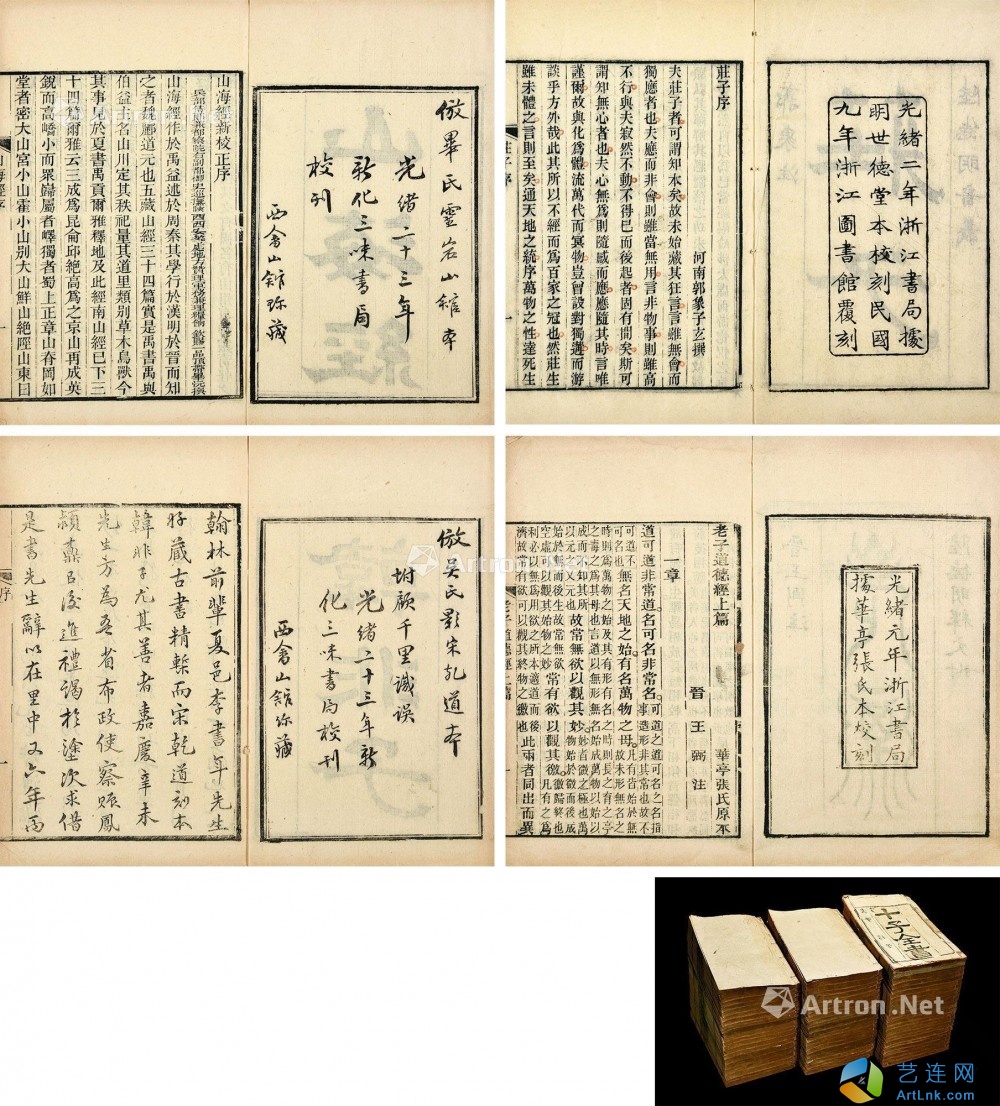 倣畢氏靈岩山館本
光緒二十三年
新化三味書局
校刊
西畬山館珍藏
山海經新校正序
山海經作於禹益述於周秦其學行於漢明於晉而知
之者魏酈道元也五藏山經三十四篇實是禹書禹與
伯益主名山川定其秩祀量其道里類別草木鳥獸今
其事見於夏書禹貢爾雅釋地及此經南山經已下三
十四篇爾雅云三成爲昆侖邱絶高爲之京山再成英
銳而高嶠小而衆歸屬者嶧獨者蜀上正章山脊岡如
堂者密大山宮小山霍小山別大山鮮山絶陘山東曰
光緒二年浙江書局據
明世德堂本校刻民國
九年浙江圖書館覆刻
莊子序
河南郭象子玄撰
夫莊子者可謂知本矣故未始藏其狂言言雖無會而
獨應者也夫應而非會則雖當無用言非物事則雖高
不行與夫寂然不動不得已而後起者固有間矣斯可
謂知無心者也夫心無爲則隨感而應應隨其時言唯
謹爾故與化爲體流萬代而冥物豈曾設對獨遘而游
談乎方外哉此其所以不經而爲百家之冠也然莊生
雖未體之言則至矣通天地之統序萬物之性達死生
倣吳氏影宋乾道本
坿顧千里識誤
光緒二十三年新
化三味書局校刊
西畬山館珍藏
翰林前輩夏邑李書年先生
好藏古書精槧而宋乾道刻本
韓非子尤其善者嘉慶辛未
先生方爲吾省布政使察賑鳳
潁鼒以後進禮謁於塗次求借
是書先生辭以在里中又六年而
序
光緒元年浙江書局
據華亭張氏本校刻
老子道德經上篇
晉 王弼注
華亭張氏原本
一章
道可道非常道名可名非常名可道之道可名之名指事造形非其常也故不可道不可名也
無名天地之始有名萬物之母
故常無欲以觀其妙
常有欲以觀其徼
此兩者同出而異
十子全書
Artron.Net
Artron.Net
艺连网
ArtLnk.com